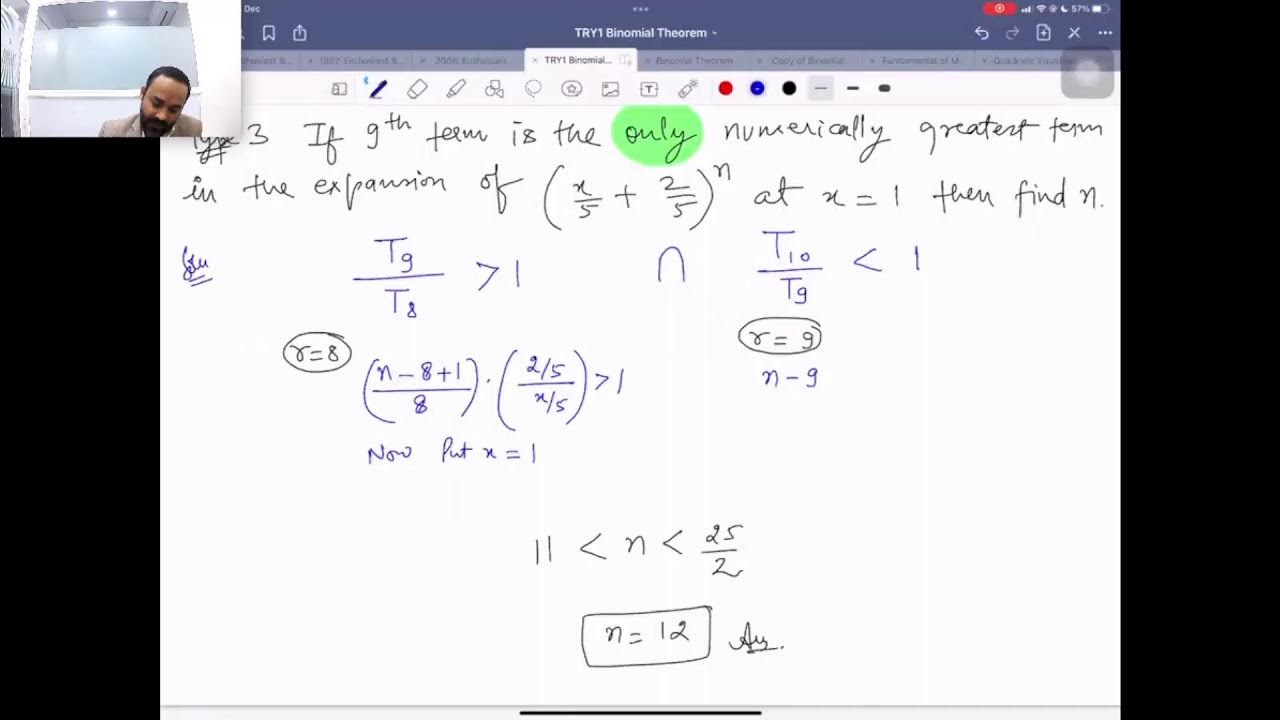 Dec
57%
TRY1 Binomial Theorem
TRY1 Binomial...
Binomial Theorem
Copy of Binomial
Fundamental of M
Quadratic Equation
Type 3 If 9th term is the only numerically greatest term
in the expansion of (x/5 + 2/5)^n at x = 1 then find n.
Soln T9/T8 > 1 ∩ T10/T9 < 1
r=8 r=9
((n-8+1)/8) · ((2/5)/(x/5)) > 1 n-9
Now Put x = 1
11 < n < 25/2
n = 12 Ans.